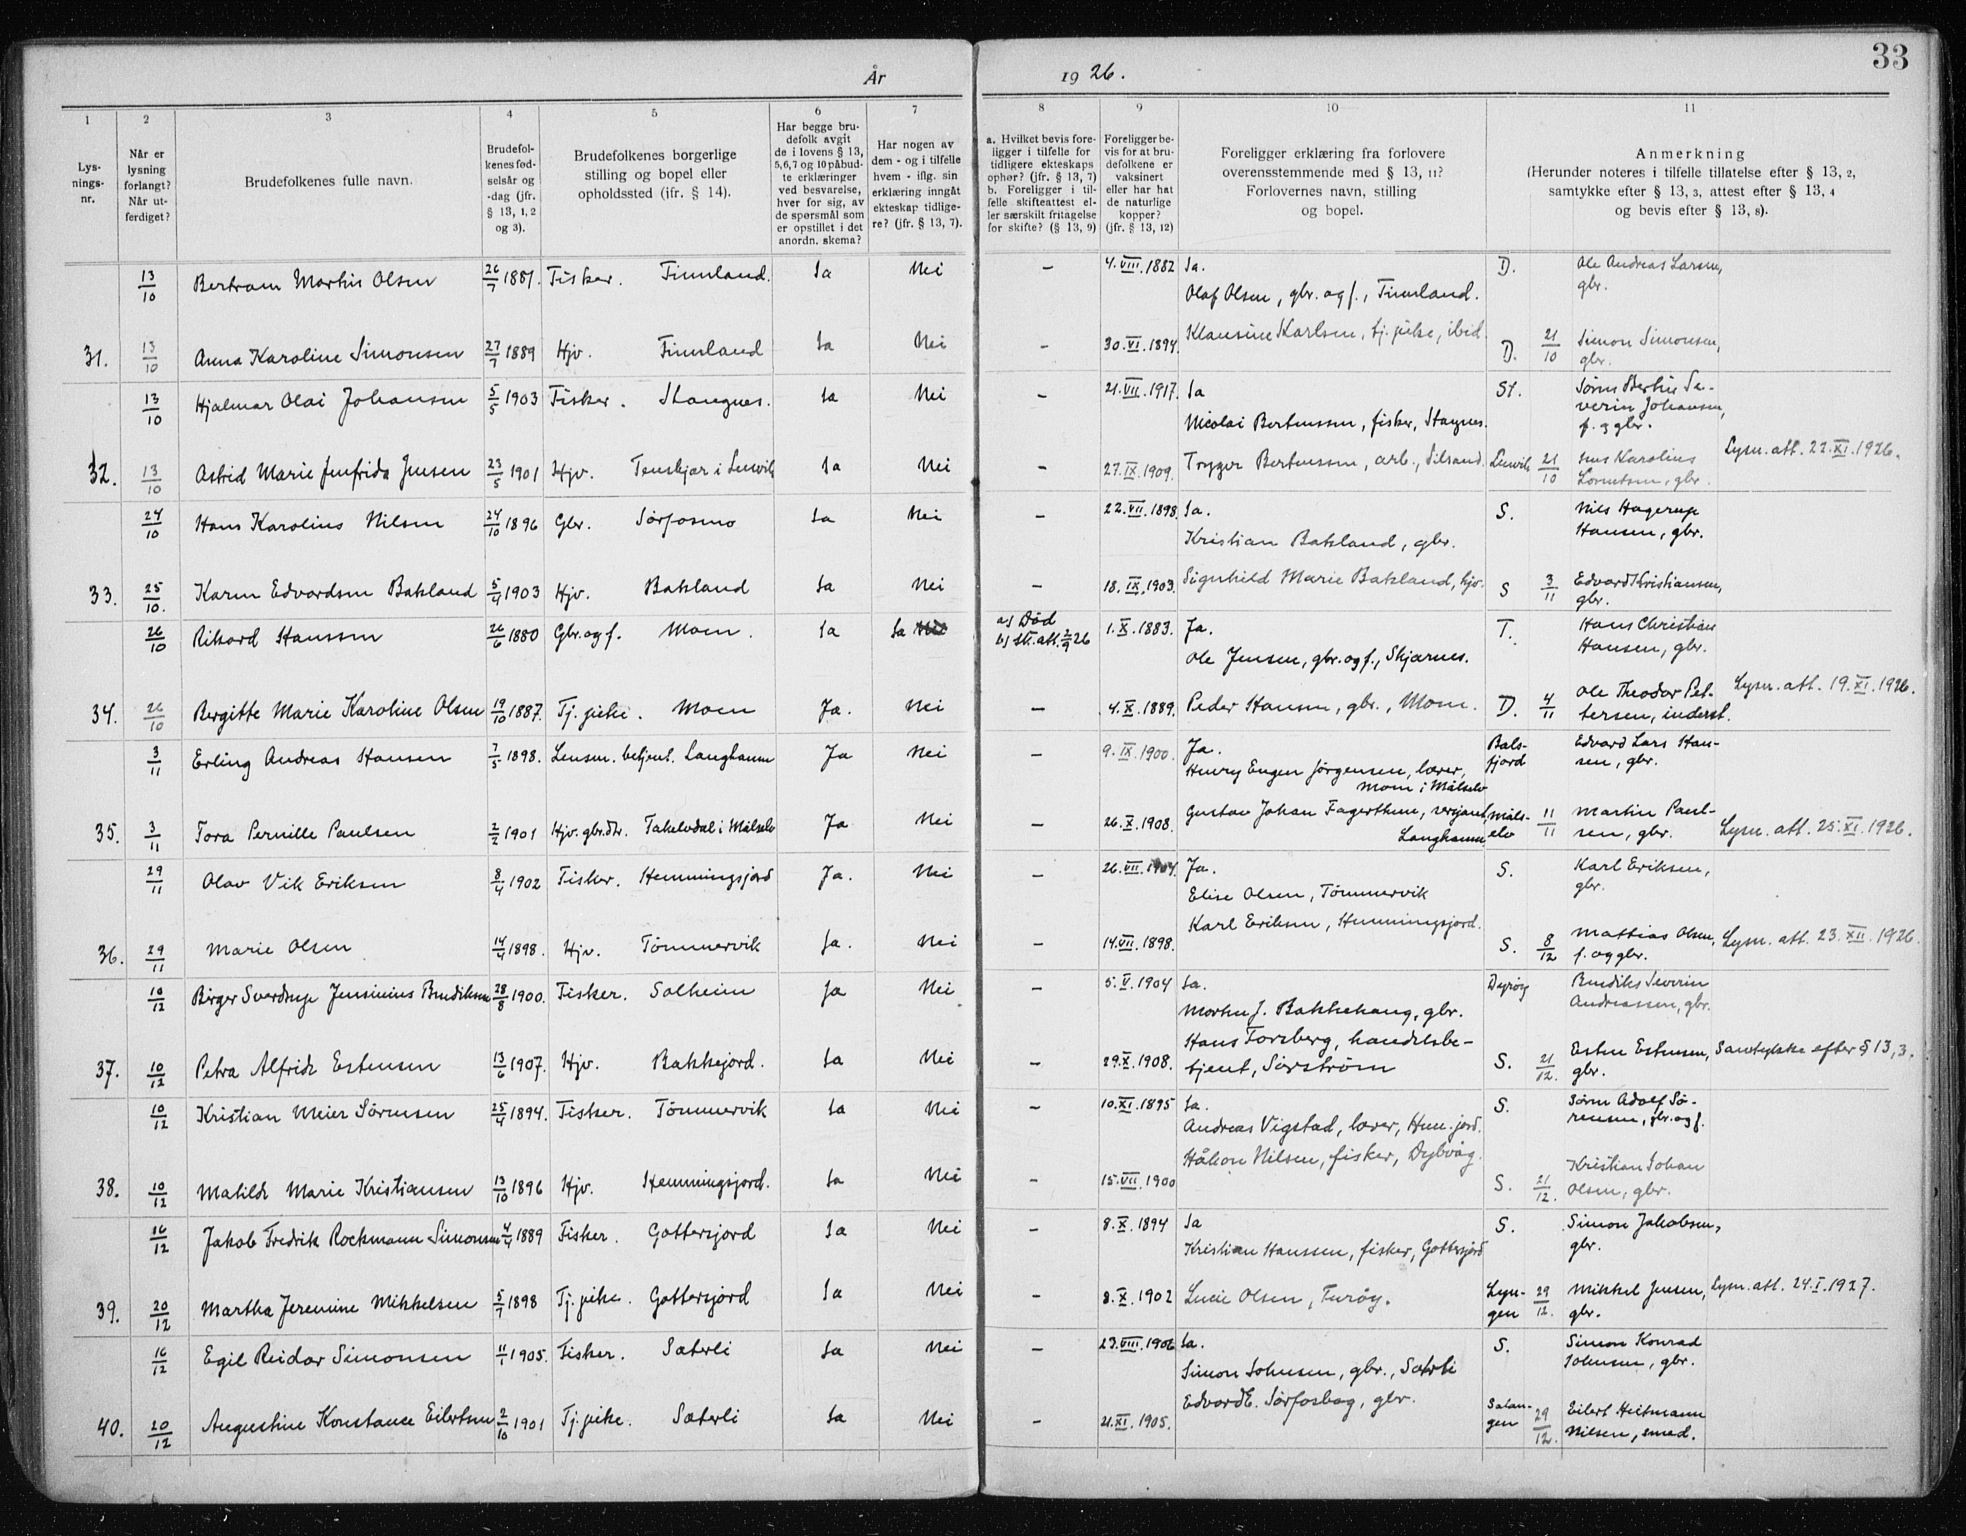 33
År 1926.
1 2 3 4 5 6 7 8 9 10 11
Lys-
nings-
nr.
Når er
lysning
forlangt?
Når ut-
ferdiget?
Brudefolkenes fulle navn.
Brudefol-
kenes fød-
selsår og
-dag (jfr.
§ 13, 1, 2
og 3).
Brudefolkenes borgerlige
stilling og bopel eller
opholdssted (ifr. § 14).
Har begge bru-
defolk avgit
de i lovens § 13,
5,6,7 og 10 påbud-
te erklæringer
ved besvarelse,
hver for sig, av
de spørsmål som
er opstillet i det
anordn. skema?
Har nogen av
dem - og i tilfelle
hvem - iflg. sin
erklæring inngåt
ekteskap tidlige-
re? (jfr. § 13, 7).
a. Hvilket bevis fore-
ligger i tilfelle for
tidligere ekteskaps
ophør? (jfr. § 13, 7)
b. Foreligger i til-
felle skifteattest el-
ler særskilt fritagelse
for skifte? (§ 13, 9)
Foreligger be-
vis for at bru-
defolkene er
vaksinert
eller har hat
de naturlige
kopper?
(jfr. § 13, 12)
Foreligger erklæring fra forlovere
overensstemmende med § 13, 11?
Forlovernes navn, stilling
og bopel.
Anmerkning
(Herunder noteres i tilfelle tillatelse efter § 13, 2,
samtykke efter § 13, 3, attest efter § 13, 4
og bevis efter § 13, 8).
13/10 Bertram Martin Olsen 26/7 1881. Fisker. Finnland. Ja Nei – 4.VIII.1882 Ja. D. Ole Andreas Larsen,
Olaf Olsen, gbr. og f., Finnland. gbr.
31. 13/10 Anna Karoline Simonsen 27/7 1889 Hjv. Finnland Ja Nei – 30.VI.1894. Klausine Karlsen, tj.pike, ibid. D. 21/10 Simon Simonsen,
gbr.
13/10 Hjalmar Olai Johansen 5/5 1903 Fisker. Stangnes. Ja Nei – 21.VII.1917. Ja St. Søren Bertin Se-
verin Johansen,
Nicolai Berntssen, fisker, Stangnes. f. og gbr.
32. 13/10 Astrid Marie Jenfrida Jensen 23/5 1901 Hjv. Tenskjær i Lenvik Ja Nei – 27.IX.1909. Trygve Berntssen, arb., Silsand. Lenvik 21/10 Karolius Lysn. att. 22.XI.1926.
Lorentsen, gbr.
24/10 Hans Karolius Nilsen 24/10 1896 Gbr. Sørfosmo Ja Nei – 22.VII.1898. Ja. S. Nils Hagerup
Kristian Bakland, gbr. Hansen, gbr.
33. 25/10. Karen Edvardsen Bakland 5/4 1903 Hjv. Bakland Ja Nei – 18.IX.1903. Signhild Marie Bakland, hjv. S 3/11 Edvard Kristiansen,
gbr.
26/10 Rikard Hanssen 26/6 1880 Gbr. og f. Moen. Ja Ja Nei a) Død 1.X.1883. Ja. T. Hans Christian
b) sk. att. 2/9 26 Ole Jensen, gbr. og f., Skjærnes. Hansen, gbr.
34. 26/10 Bergitte Marie Karoline Olsen 19/10 1887. Tj.pike. Moen Ja. Nei – 4.X.1889. Peder Hansen, gbr., Moen. D. 4/11 Ole Theodor Pet- Lysn. att. 19.XI.1926.
tersen, inderst.
3/11 Erling Andreas Hansen 7/5 1898. Lensm. betjent. Langhamn Ja Nei – 9.IX.1900. Ja. Bals-
fjord Edvard Lars Han-
sen, gbr.
Henry Eugen Jørgensen, lærer,
Moen i Målselv
35. 3/11 Tora Pernille Paulsen 2/2 1901 Hjv. gbr.dtr. Takelvdal i Målselv Ja Nei – 26.X.1908. Gustav Johan Fagertheim, Måls-
elv 11/11 Martin Paul-
sen, gbr. Lysn. att. 25.XI.1926.
Langhamn
29/11 Olav Vik Eriksen 8/4 1902 Fisker. Hemmingsjord Ja. Nei – 26.VII.1904. Ja. S. Karl Eriksen,
gbr.
Elise Olsen, Tømmervik
Karl Eriksen, Hemmingsjord.
36. 29/11 Marie Olsen 14/4 1898. Hjv. Tømmervik Ja. Nei – 14.VII.1898. S. 8/12 Mattias Olsen, Lysn. att. 23.XII.1926.
f. og gbr.
10/12 Birger Sverdrup Jensinius Bendiksen 28/8 1900. Fisker. Solheim Ja Nei – 5.V.1904 Ja. Dyrøy Bendiks Severin
Andreassen, gbr.
Morten J. Bakkehaug, gbr.
Hans Forsberg, handelsbe-
37. 10/12 Petra Alfride Estensen 13/6 1907. Hjv. Bakkejord. Ja Nei – 29.X.1908. tjent, Sørstrøm S. 21/12. Esten Estensen, Samtykke efter § 13, 3.
gbr.
10/12 Kristian Meier Sørensen 25/4 1894. Fisker. Tømmervik Ja Nei – 10.XI.1895 Ja. S. Søren Adolf Sø-
rensen, gbr. og f.
Andreas Vigstad, lærer, Hem.jord.
Håkon Nilsen, fisker, Dybvåg.
38. 10/12 Matilde Marie Kristiansen 13/10 1896 Hjv. Hemmingsjord. Ja Nei – 15.VII.1900 S. 21/12. Kristian Johan
Olsen, gbr.
16/12 Jakob Fredrik Rockmann Simonsen 4/4 1889 Fisker. Gottersjord Ja Nei – 8.X.1894 Ja S. Simon Jakobsen,
gbr.
Kristian Hanssen, fisker, Gottersjord
39. 20/12 Martha Jeremine Mikkelsen 5/7 1898 Tj.pike. Gottersjord Ja Nei – 8.X.1902 Lucie Olsen, Furøy. Lyn-
gen 29/12. Mikkel Jensen, Lysn. att. 24.I.1927.
gbr.
16/12 Egil Reidar Simonsen 11/1 1905. Fisker. Sæterli Ja Nei – 23.VIII.1906 Ja. S. Simon Konrad
Johnsen, gbr.
Simon Johnsen, gbr., Sæterli
Edvard E. Sørfosbog, gbr.
40. 20/12 Augustine Konstance Eilertsen 2/10 1901 Tj.pike. Sæterli Ja Nei – 21.XI.1905. Salan-
gen 29/12. Eilert Heitmann
Nilsen, smed.